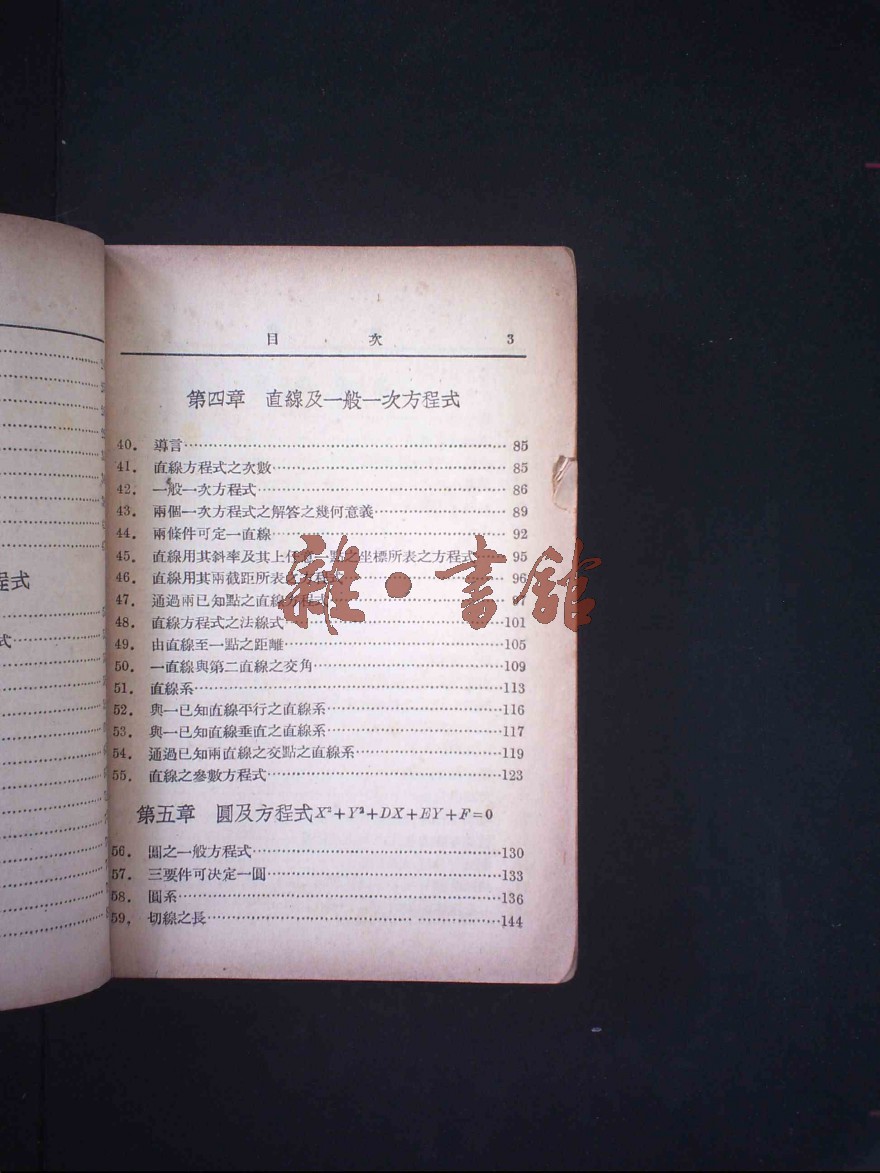 程式
式
目 次 3
第四章 直線及一般一次方程式
40. 導言 85
41. 直線方程式之次數 85
42. 一般一次方程式 86
43. 兩個一次方程式之解答之幾何意義 89
44. 兩條件可定一直線 92
45. 直線用其斜率及其上任意一點之坐標所表之方程式 95
46. 直線用其兩截距所表之方程式 96
47. 通過兩已知點之直線方程式 97
48. 直線方程式之法線式 101
49. 由直線至一點之距離 105
50. 一直線與第二直線之交角 109
51. 直線系 113
52. 與一已知直線平行之直線系 116
53. 與一已知直線垂直之直線系 117
54. 通過已知兩直線之交點之直線系 119
55. 直線之參數方程式 123
第五章 圓及方程式 X²+Y²+DX+EY+F=0
56. 圓之一般方程式 130
57. 三要件可决定一圓 133
58. 圓系 136
59. 切線之長 144
雜·書館